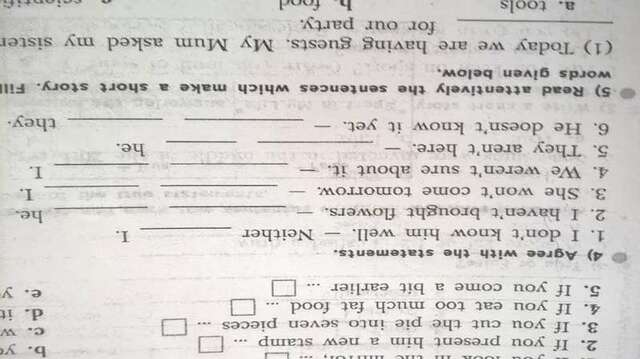 2. If you present him a new stamp ... b. y
3. If you cut the pie into seven pieces ... c. w
4. If you eat too much fat food ... d. it
5. If you come a bit earlier ... e. y
4) Agree with the statements.
1. I don't know him well. — Neither ________ I.
2. I haven't brought flowers. — ________ ________ he.
3. She won't come tomorrow. — ________ ________ I.
4. We weren't sure about it. — ________ ________ I.
5. They aren't here. — ________ ________ he.
6. He doesn't know it yet. — ________ ________ they.
5) Read attentively the sentences which make a short story. Fill
words given below.
(1) Today we are having guests. My Mum asked my sister
________ for our party.
a. tools b. food